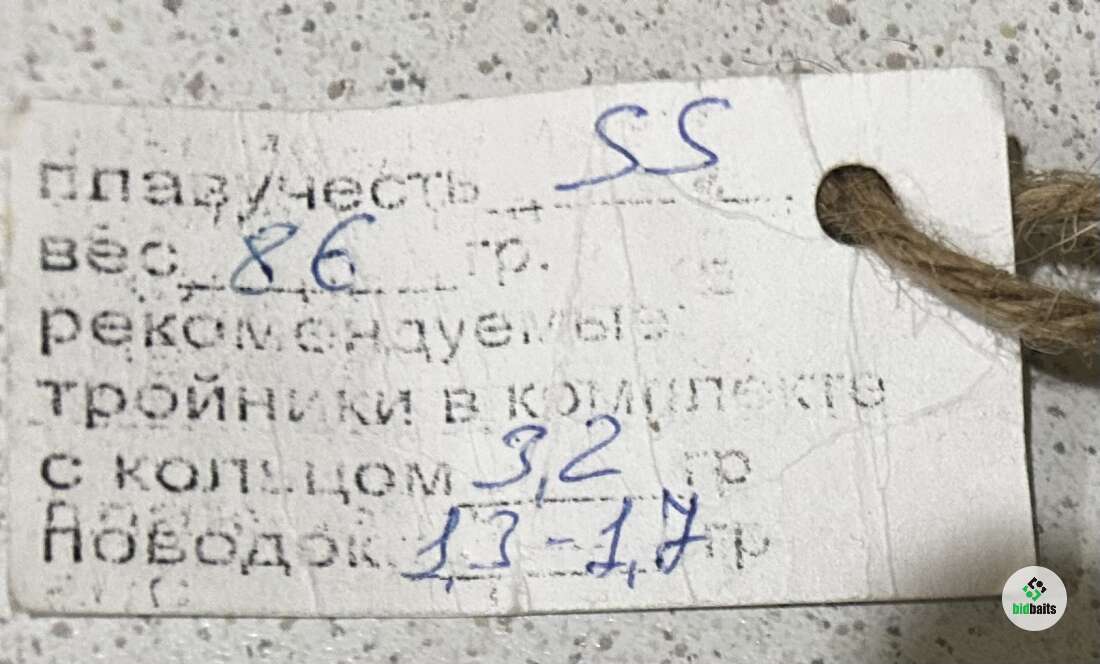 плавучесть SS
вес 86 гр.
рекомендуемые
тройники в комплекте
с кольцом 3,2 гр
Поводок 1,3-1,7 гр
bidbaits